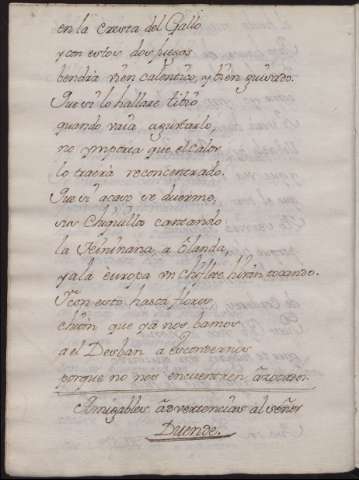 en la cresta del Gallo
y con estos dos fuegos
bendra bien calentico, y bien guisado.
Que si lo hallare tibio
quando vaia a gustarlo,
no ymporta que el calor
lo traera reconcentrado.
Que si acaso se duerme,
va Chiquilla cantando
la Nininana, a Olanda,
y a la europa un chiflete hirán tocando.
Y con esto hasta flores
chiton que ya nos bamos
a el Desban a escondernos
porque no nos encuentren
Amigables advertencias al señor
Duende.